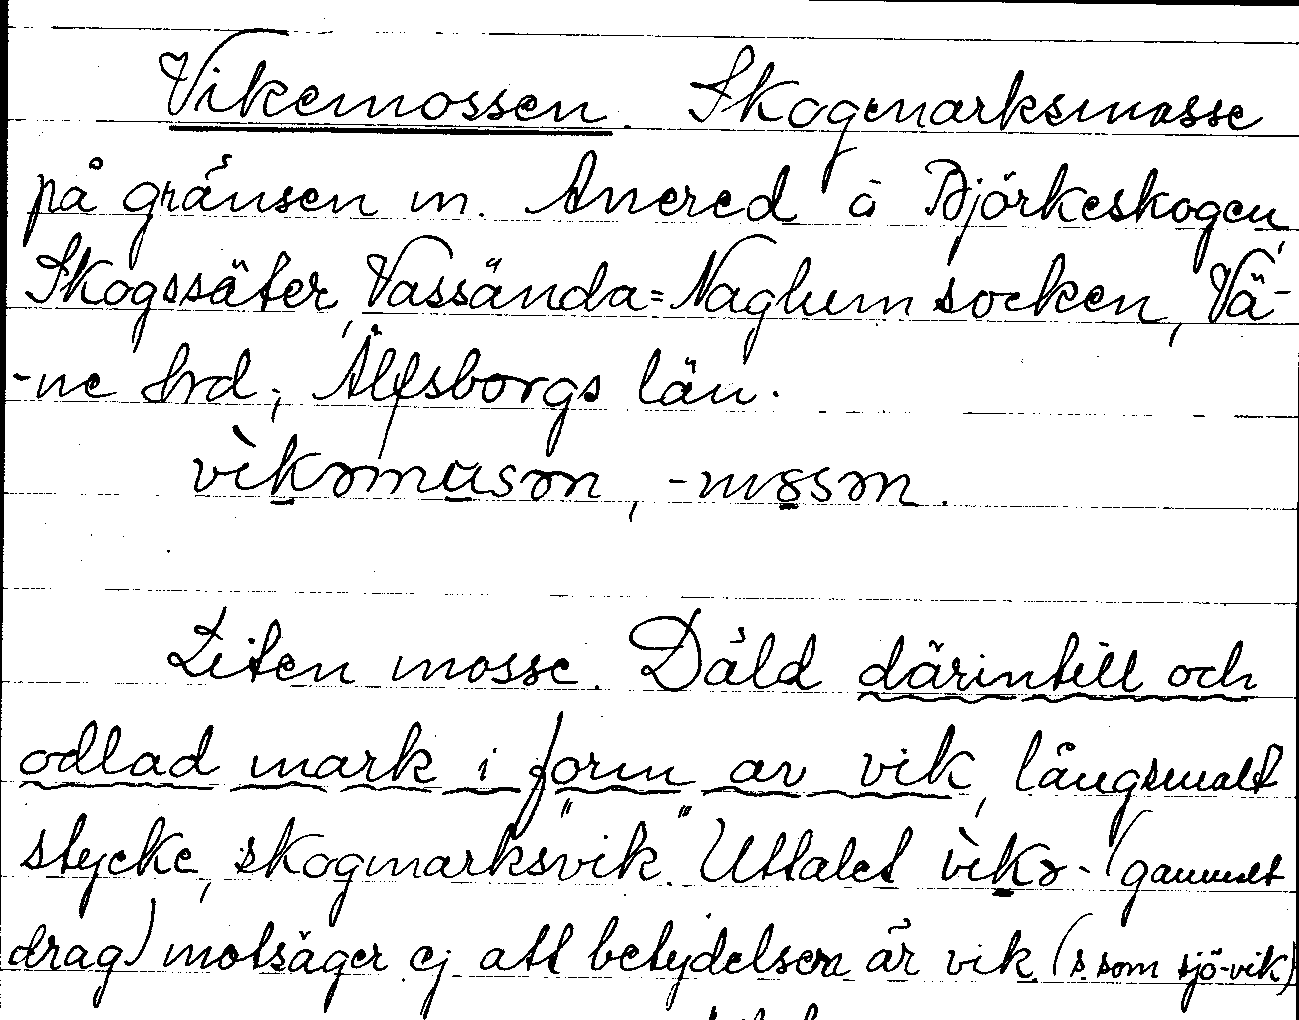 Vikemossen. Skogmarksmosse
på gränsen m. Anered å Björkeskogen,
Skogssäter, Vassända=Naglum socken, Vä-
-ne hrd, Älfsborgs län.
vìkəmusən, -mssən.
Liten mosse. Däld därintill och
odlad mark i form av vik, långsmalt
stycke, skogmarks"vik". Uttalet vìkə- (gammalt
drag) motsäger ej att betydelsen är vik (s. som sjö-vik)